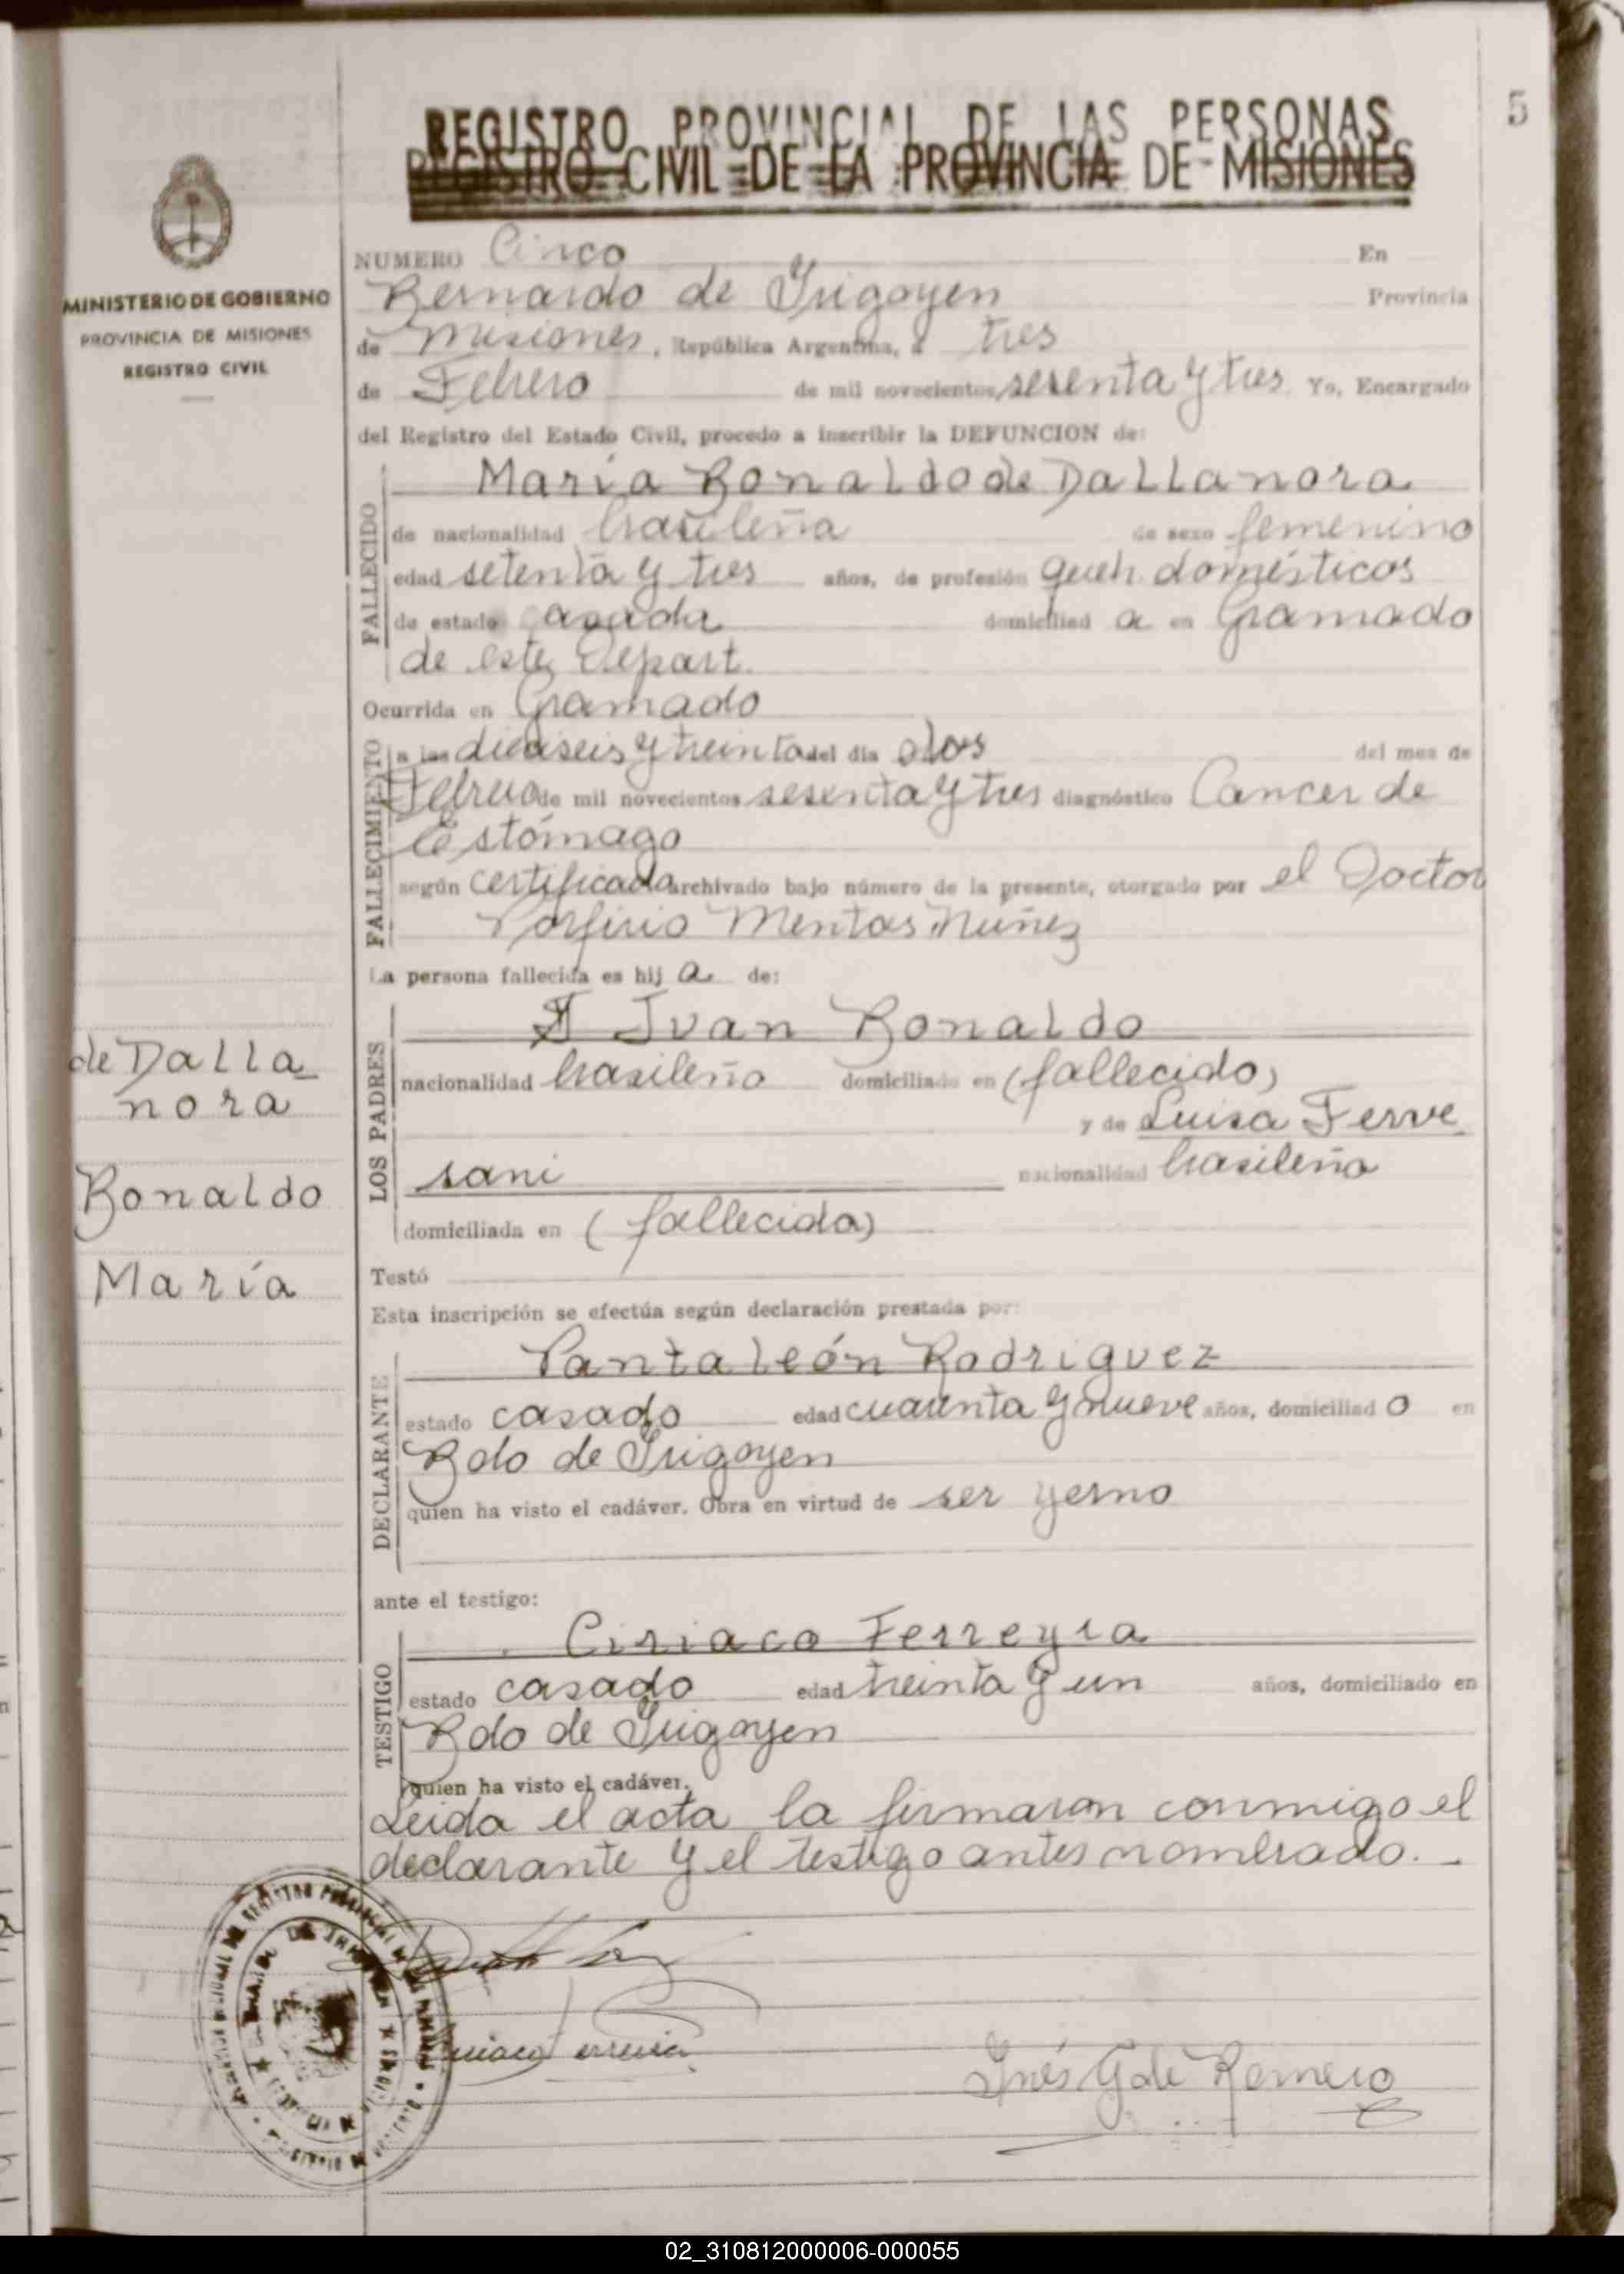 5
REGISTRO PROVINCIAL DE LAS PERSONAS
REGISTRO CIVIL DE LA PROVINCIA DE MISIONES
MINISTERIO DE GOBIERNO
PROVINCIA DE MISIONES
REGISTRO CIVIL
NUMERO Cinco En
Bernardo de Irigoyen Provincia
de Misiones, República Argentina, a tres
de Febrero de mil novecientos sesenta y tres Yo, Encargado
del Registro del Estado Civil, procedo a inscribir la DEFUNCION de:
FALLECIDO
María Ronaldo de Dallanora
de nacionalidad brasileña de sexo femenino
edad setenta y tres años, de profesión queh. domésticos
de estado casada domiciliad a en Gramado
de este Depart.
Ocurrida en Gramado
FALLECIMIENTO
a las dieciseis y treinta del día dos del mes de
Febrero de mil novecientos sesenta y tres diagnóstico Cancer de
Estómago
según certificado archivado bajo número de la presente, otorgado por el Doctor
Porfirio Mentas Nuñez
La persona fallecida es hij a de:
LOS PADRES
Juan Ronaldo
nacionalidad brasileño domiciliado en (fallecido)
y de Luisa Ferve
sani nacionalidad brasileña
domiciliada en (fallecida)
de Dalla_
nora
Ronaldo
María
Testó
Esta inscripción se efectúa según declaración prestada por:
DECLARANTE
Pantaleón Rodriguez
estado casado edad cuarenta y nueve años, domiciliad o en
Bdo de Irigoyen
quien ha visto el cadáver. Obra en virtud de ser yerno
ante el testigo:
TESTIGO
Ciriaco Ferreyra
estado casado edad treinta y un años, domiciliado en
Bdo de Irigoyen
quien ha visto el cadáver.
Leida el acta la firmaron conmigo el
declarante y el testigo antes nombrado.-
Inés G de Romero
02_310812000006-000055